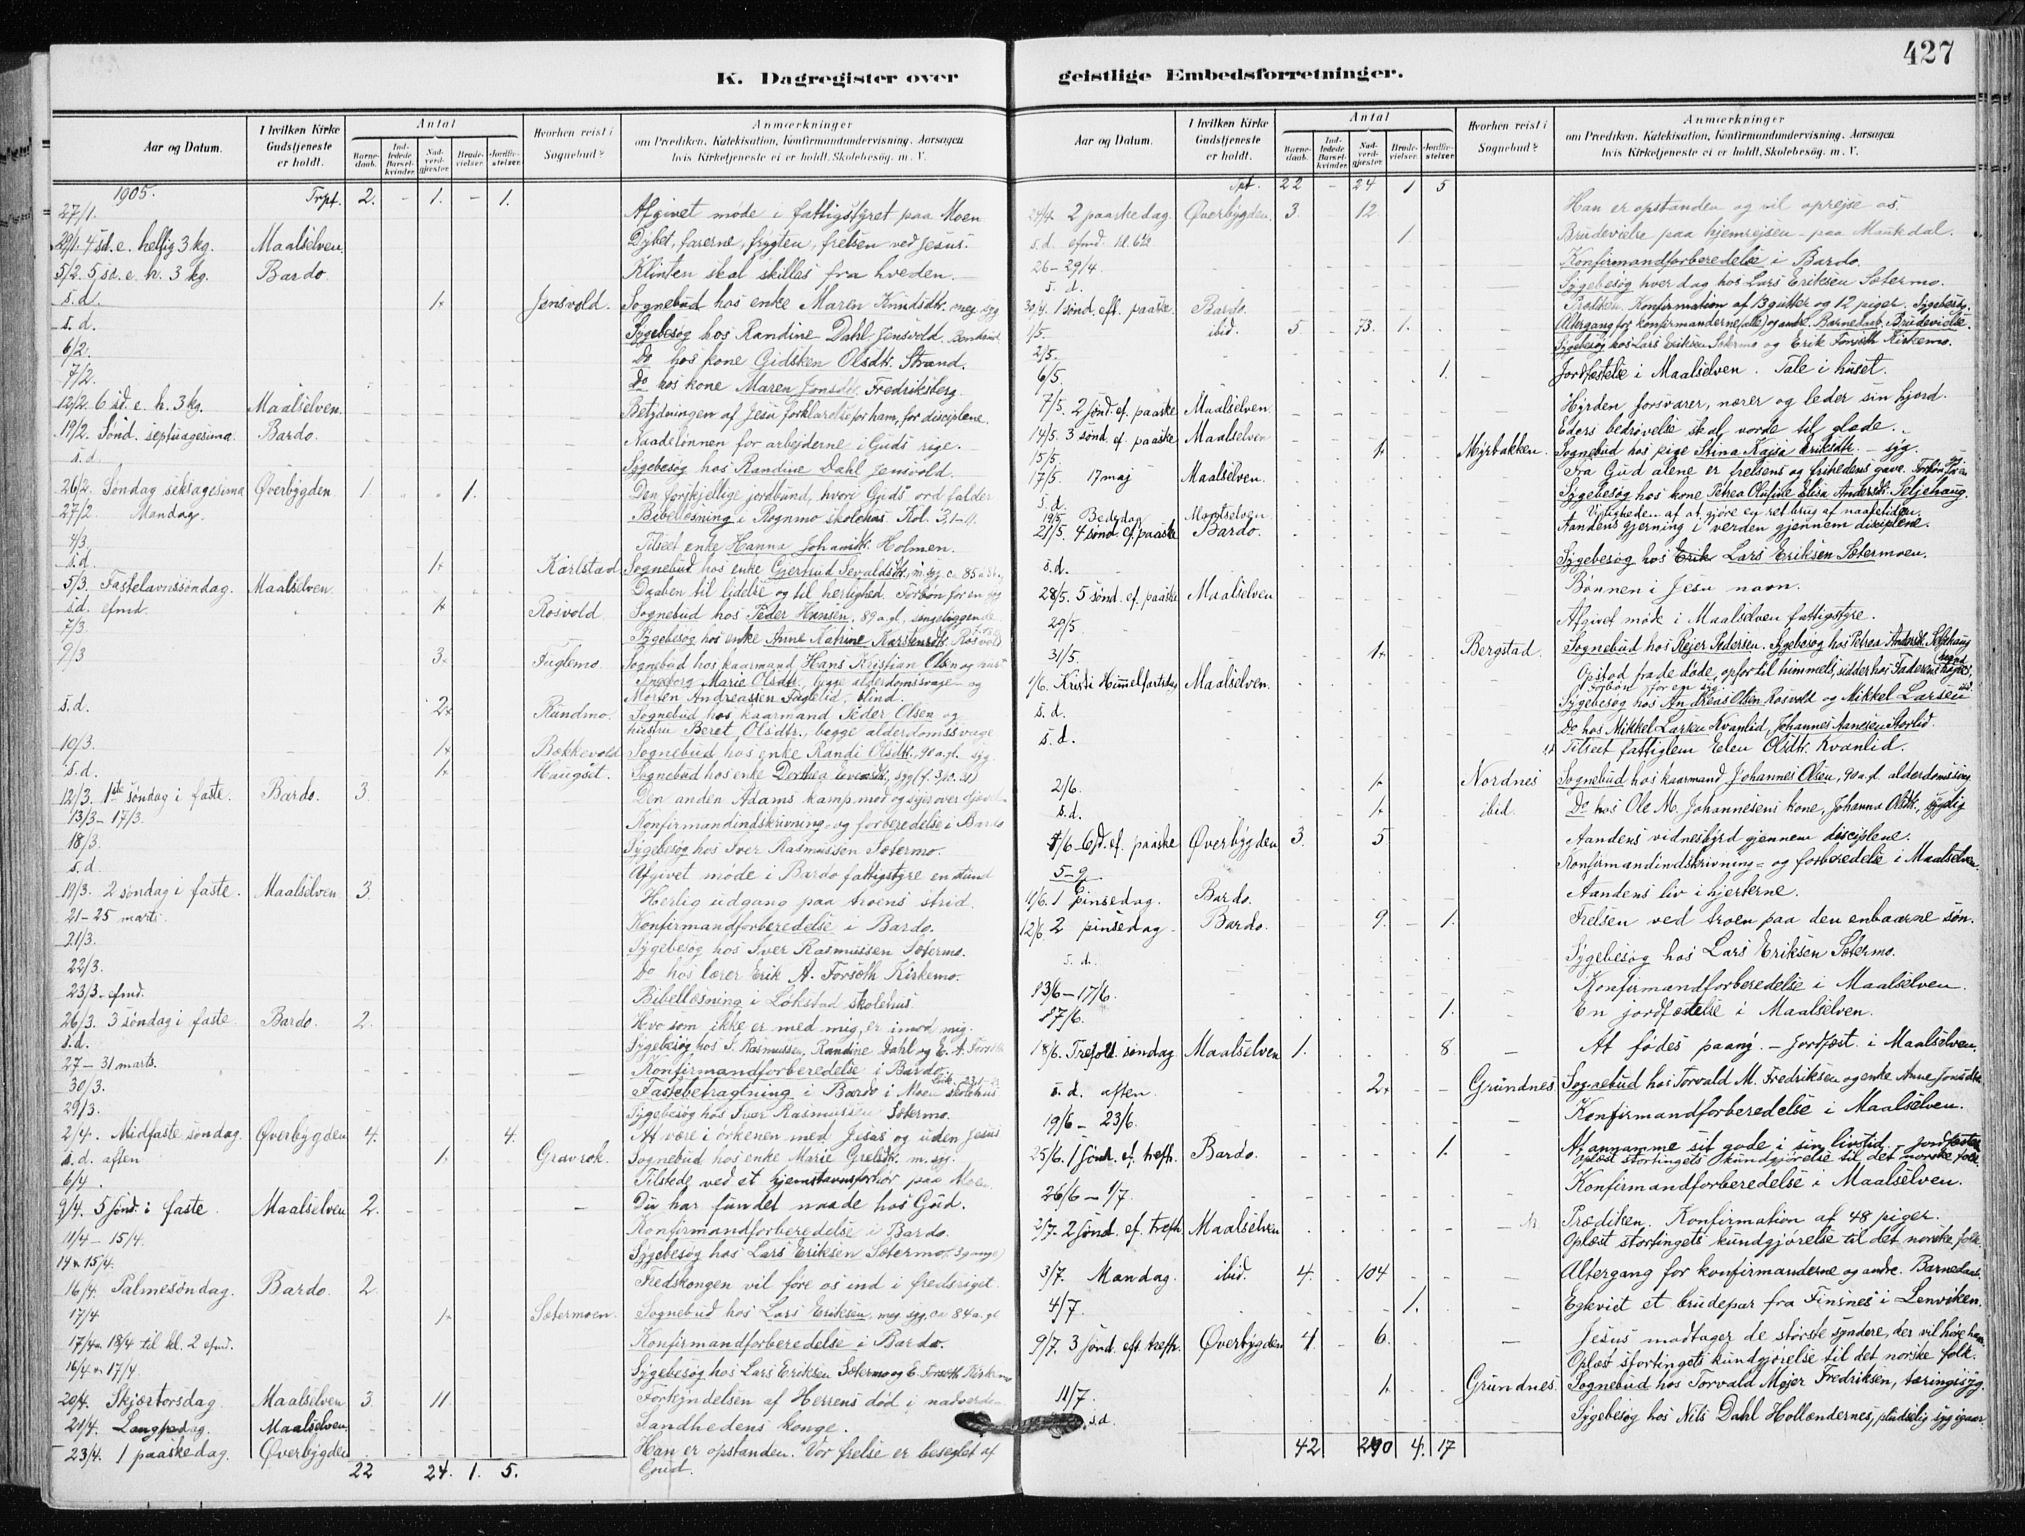 427
K. Dagregister over geistlige Embedsforretninger.
Aar og Datum.
I hvilken Kirke Gudstjeneste er holdt.
Antal
Barnedaab.
Indledede Barselkvinder.
Nadverdgjæster.
Brudevielser.
Jordfæstelser.
Hvorhen reist i Sognebud?
Anmærkninger
om Prædiken, Katekisation, Konfirmandundervisning, Aarsagen
hvis Kirketjeneste ei er holdt, Skolebesøg. m. V.
1905. Trpt. 2. - 1. - 1.
27/1. Afgivet møde i fattigstyret paa Moen
29/1. 4 sd. e. hellig 3 kg. Maalselven. Dybet, farerne, frygten, frelsen ved Jesus.
5/2. 5 sd. e. h. 3 kg. Bardo. Klinten skal skilles fra hveden.
s. d. 1+ Jensvold. Sognebud hos enke Maren Knudsdtr. meg. syg
s. d. Sygebesøg hos Randine Dahl Jensvold.
6/2. Do hos kone Gidsken Olsdtr. Strand.
7/2. Do hos kone Maren Jonsdtr. Fredriksberg.
12/2. 6 sd. e. h. 3 kg. Maalselven. Betydningen af Jesu forklarelse for ham, for disciplene.
19/2. Sønd. septuagesima. Bardo. Naadelønnen for arbejderne i Guds rige.
s. d. Sygebesøg hos Randine Dahl Jensvold.
26/2. Søndag seksagesima Øverbygden 1. 1. Den forskjellige jordbund, hvori Guds ord falder
27/2. Mandag. Bibellæsning i Rognmo skolehus. Kol. 3,1-11.
4/3 Tilseet enke Hanna Johansdtr. Holmen.
s. d. 1+ Karlstad Sognebud hos enke Gjertrud Sevaldsdtr., m. syg ca 85 a.
5/3. Fastelavnssøndag. Maalselven. Daaben til lidelse og til herlighed. Forbøn for en syg
s. d. efmd. 1+ Rosvold Sognebud hos Peder Hansen, 89 a. gl., sengeliggende
7/3. Sygebesøg hos enke Anne Katrine Karstensdtr. Rosvold
9/3 3+ Fuglemo. Sognebud hos kaarmand Hans Kristian Olsen og hust
Ingeborg Marie Olsdtr. begge alderdomssvage og
Morten Andreassen Fuglelid, blind.
s. d. 2+ Rundmo. Sognebud hos kaarmand Peder Olsen og
hustru Beret Olsdtr., begge alderdomssvage
10/3. 1+ Bækkevold Sognebud hos enke Randi Olsdtr. 90 a. gl. syg.
s. d. 1+ Haugset. Sognebud hos enke Dorthea
12/3. 1ste søndag i faste. Bardo. 3. Den anden Adams kamp mod og sejer over djævel
13/3 - 17/3. Konfirmandindskrivning og forberedelse i Bardo
18/3. Sygebesøg hos Iver Rasmussen Sætermo.
s. d. Afgivet møde i Bardo fattigstyre en stund
19/3. 2 søndag i faste. Maalselven 3. Herlig udgang paa troens strid.
21 - 25 marts. Konfirmandforberedelse i Bardo.
21/3. Sygebesøg hos Iver Rasmussen Sætermo.
22/3. Do hos lærer Erik A. Forseth Kirkemo.
23/3. efmd. Bibellæsning i Løkstad skolehus
26/3. 3 søndag i faste. Bardo. 2. Hvo som ikke er med mig, er imod mig.
s. d. Sygebesøg hos I. Rasmussen, Randine Dahl og E. A. Forseth
27 - 31 marts. Konfirmandforberedelse i Bardo.
30/3. Fastebetragtning i Bardo i Moen skolehus
29/3. Sygebesøg hos Iver Rasmussen Sætermo.
2/4. Midfaste søndag. Øverbygden 4. 4. At være i ørkenen med Jesus og uden Jesus
s. d. aften 1+ Gravrok. Sognebud hos enke Marie Grelsdtr. m. syg.
6/4. Tilstede ved et hjemstavnsforhør paa Moen
9/4. 5 sønd. i faste. Maalselven 2. Du har fundet naade hos Gud.
11/4 - 15/4. Konfirmandforberedelse i Bardo.
14 & 15/4. Sygebesøg hos Lars Eriksen Sætermo (3 gange)
16/4. Palmesøndag. Bardo. 2. Fredskongen vil føre os ind i fredsriget.
17/4 1+ Sætermoen. Sognebud hos Lars Eriksen, meg. syg, ca 84 a. gl
17/4 & 18/4 til kl. 2 efmd. Konfirmandforberedelse i Bardo.
16/4 & 17/4. Sygebesøg hos Lars Eriksen Sætermo og E. Forseth Kirkemo
20/4. Skjærtorsdag Maalselven 3. 11. Forkyndelsen af Herrens død i nadverden
21/4. Langfredag. Maalselven Sandhedens konge.
23/4. 1 paaskedag. Øverbygden Han er opstanden. Vor frelse er beseglet af
Gud.
22 24. 1. 5.
Aar og Datum.
I hvilken Kirke Gudstjeneste er holdt.
Antal
Barnedaab.
Indledede Barselkvinder.
Nadverdgjæster.
Brudevielser.
Jordfæstelser.
Hvorhen reist i Sognebud?
Anmærkninger
om Prædiken, Katekisation, Konfirmandundervisning, Aarsagen
hvis Kirketjeneste ei er holdt, Skolebesøg. m. V.
Tpt. 22 - 24 1 5
24/4. 2 paaskedag. Øverbygden. 3. - 12. Han er opstanden og vil oprejse os.
s. d. efmd. kl. 6 1/2 1. Brudevielse paa hjemrejsen - paa Maukdal.
26 - 29/4. Konfirmandforberedelse i Bardo.
s. d. Sygebesøg hver dag hos Lars Eriksen Sætermo.
30/4. 1 sønd. eft. paaske. Bardo. Prædiken. Konfirmation af 13 gutter og 12 piger. Sygebesøg.
1/5. ibid. 5 - 73. 1. Altergang for konfirmanderne (alle) og andre. Barnedaab. Brudevielse.
2/5. Sygebesøg hos Lars Eriksen Sætermo og Erik Forseth Kirkemo.
6/5. 1. Jordfæstelse i Maalselven. Tale i huset.
7/5. 2 sønd. ef. paaske Maalselven. Hyrden forsvarer, nærer og leder sin hjord.
14/5. 3 sønd. ef. paaske Maalselven Eders bedrøvelse skal vorde til glæde.
15/5. 1+ Myrbakken. Sognebud hos pige Stina Kajsa Eriksdtr. - syg.
17/5. 17 maj Maalselven. Fra Gud alene er frelsens og frihedens gave.
s. d. Sygebesøg hos kone Petrea Olufine Elisa Andersdtr. Seljehaug.
19/5. Bededag Maalselven Vigtigheden af at gjøre en ret brug af naadetiden.
21/5. 4 sønd. ef. paaske Bardo. Aandens gjerning i verden gjennem disciplene.
s. d. Sygebesøg hos Erik Lars Eriksen Sætermoen.
28/5. 5 sønd. ef. paaske Maalselven Bønnen i Jesu navn.
29/5 Afgivet møde i Maalselven fattigstyre.
31/5. 1+ Bergstad. Sognebud hos Rejer Pedersen. Sygebesøg hos Petrea Andersdtr. Seljehaug
1/6. Kristi Himmelfartsdag Maalselven. Opstod fra de døde, opfor til himmels, sidder hos Faderens højre
Forbøn for en syg.
s. d. Sygebesøg hos Andreas Olsen Rosvold og Mikkel Larsen
s. d. Do hos Mikkel Larsen Kvanlid, Johannes Aanesen Storlid.
Tilseet fattiglem Elen Olsdtr. Kvanlid.
2/6. 1+ Nordnes Sognebud hos kaarmand Johannes Olsen, 90 a. gl. alderdomssvag
s. d. 1+ ibid. Do hos Ole M. Johannesens kone, Johanna Olsdtr., sygelig
4/6 - 6 sd. ef. paaske Øverbygden 3. 5 Aandens vidnesbyrd gjennem disciplene.
5-9/6 Konfirmandindskrivning- og forberedelse i Maalselven.
11/6. 1 pinsedag. Bardo. Aandens liv i hjerterne.
12/6. 2 pinsedag Bardo. 9. 1. Frelsen ved troen paa den enbaarne søn.
s. d. Sygebesøg hos Lars Eriksen Sætermo.
13/6 - 17/6. Konfirmandforberedelse i Maalselven.
17/6. 1. En jordfæstelse i Maalselven.
18/6. Trefold. søndag Maalselven 1. 8 At fødes paany. - Jordfæst. i Maalselven.
s. d. aften. 2+ Grundnes Sognebud hos Torvald M. Fredriksen og enke Anne Jonsdtr.
19/6 - 23/6. Konfirmandforberedelse i Maalselven.
25/6. 1 sønd. ef. trefh. Bardo. 1. At annamme sit gode i sin livstid. Jordfæstelse
Oplæst stortingets kundgjørelse til det norske folk.
26/6 - 1/7. Konfirmandforberedelse i Maalselven.
2/7 - 2 sønd. ef. trefh. Maalselven Prædiken. Konfirmation af 48 piger.
Oplæst stortingets kundgjørelse til det norske folk.
3/7. Mandag. ibid. 4. - 104 Altergang for konfirmanderne og andre. Barnedaab.
4/7. 1. Egteviet et brudepar fra Finsnes i Lenviken.
9/7. 3 sønd. eft. trefh. Øverbygden 4. - 6. Jesus modtager de største syndere, der vil høre ham
Oplæst stortingets kundgjørelse til det norske folk.
11/7. 1+ Grundnes. Sognebud hos Torvald Mejer Fredriksen, tæringssyg.
s. d. Sygebesøg hos Nils Dahl Hollændernes, pludselig syg igaar.
42 290 4. 17